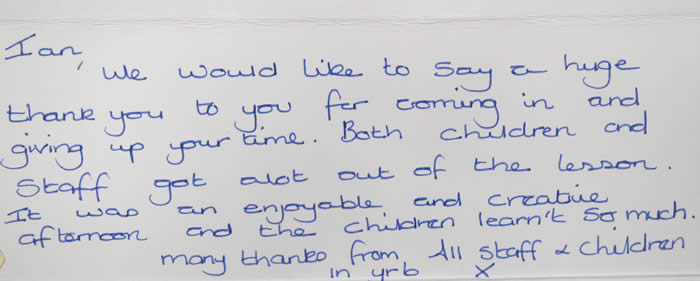 Ian,
We would like to say a huge
thank you to you for coming in and
giving up your time. Both children and
staff got alot out of the lesson.
It was an enjoyable and creative
afternoon and the children learn't so much.
many thanks from All staff & children
in yrb X